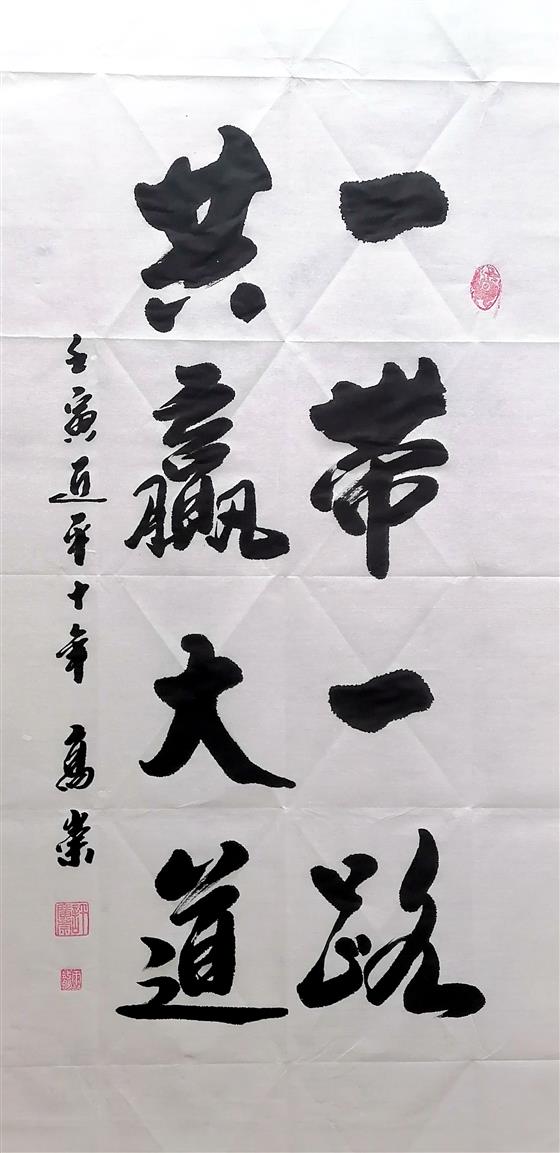 一带一路
共赢大道
壬寅近平十年 高崇